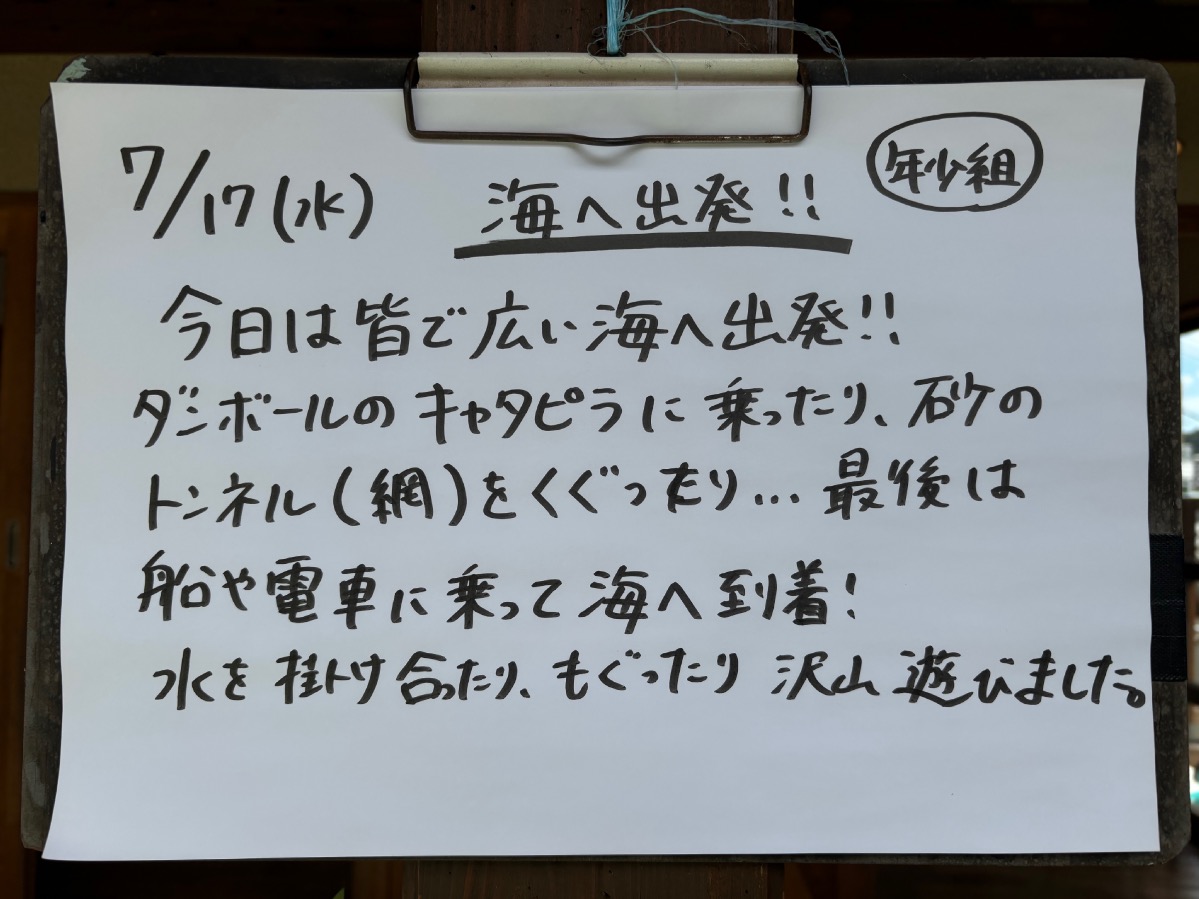 7/17(水) 海へ出発!! 年少組
今日は皆で広い海へ出発!!
ダンボールのキャタピラに乗ったり、砂の
トンネル(網)をくぐったり...最後は
船や電車に乗って海へ到着!
水を掛け合ったり、もぐったり沢山遊びました。